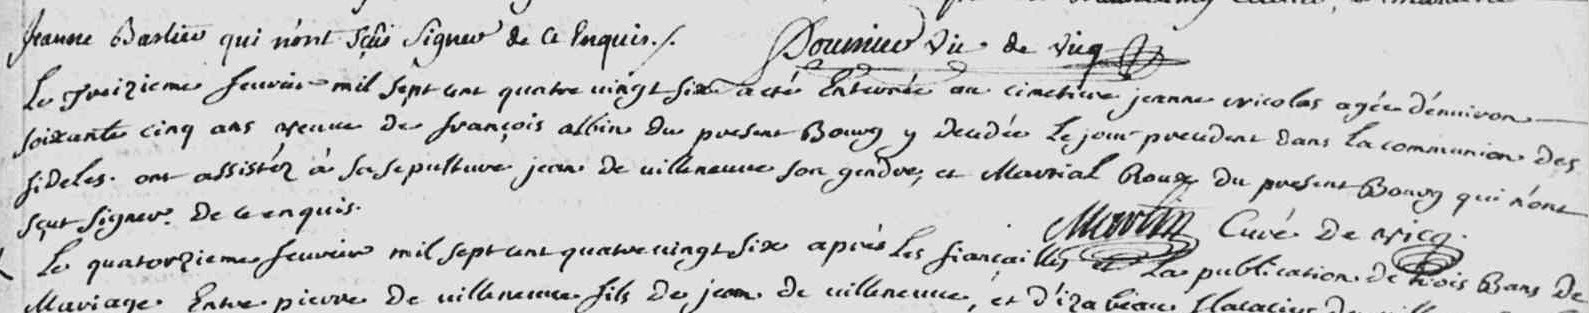 Jeanne Bastier qui n'ont sçus signer de ce Enquis./. Doumier Vic. de Vicq
Le treizieme feuvrier mil sept cent quatre vingt six a eté Enterrée au cimetiere jeanne nicolas agée d'environ
soixante cinq ans veuve de françois albin du present Bourg y decedée Le jour precedent dans La communion des
fideles. ont assistéz à sa sepulture jean de villeneuve son gendre, et Marsial Roux du present Bourg qui n'ont
sçut signer. De ce enquis. Martin Curé De vicq.
Le quatorzieme feuvrier mil sept cent quatre vingt six aprés Les fiançailles et La publication de trois Bans de
Mariage Entre pierre de villeneuve fils de jean de villeneuve, et d'izabeau